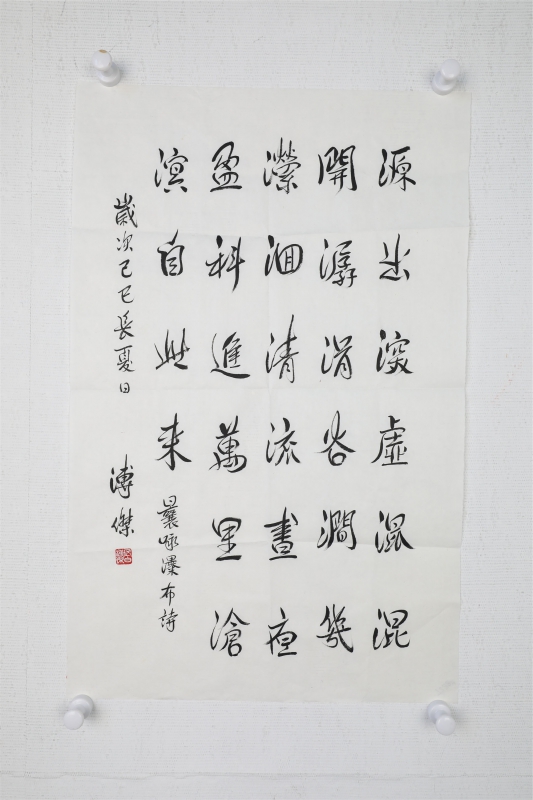 源出深虛混混
開潺涓谷澗幾
瀠洄清流晝夜
盈科進萬里滄
溟自此来
曩咏瀑布詩
歲次己巳長夏日
溥傑